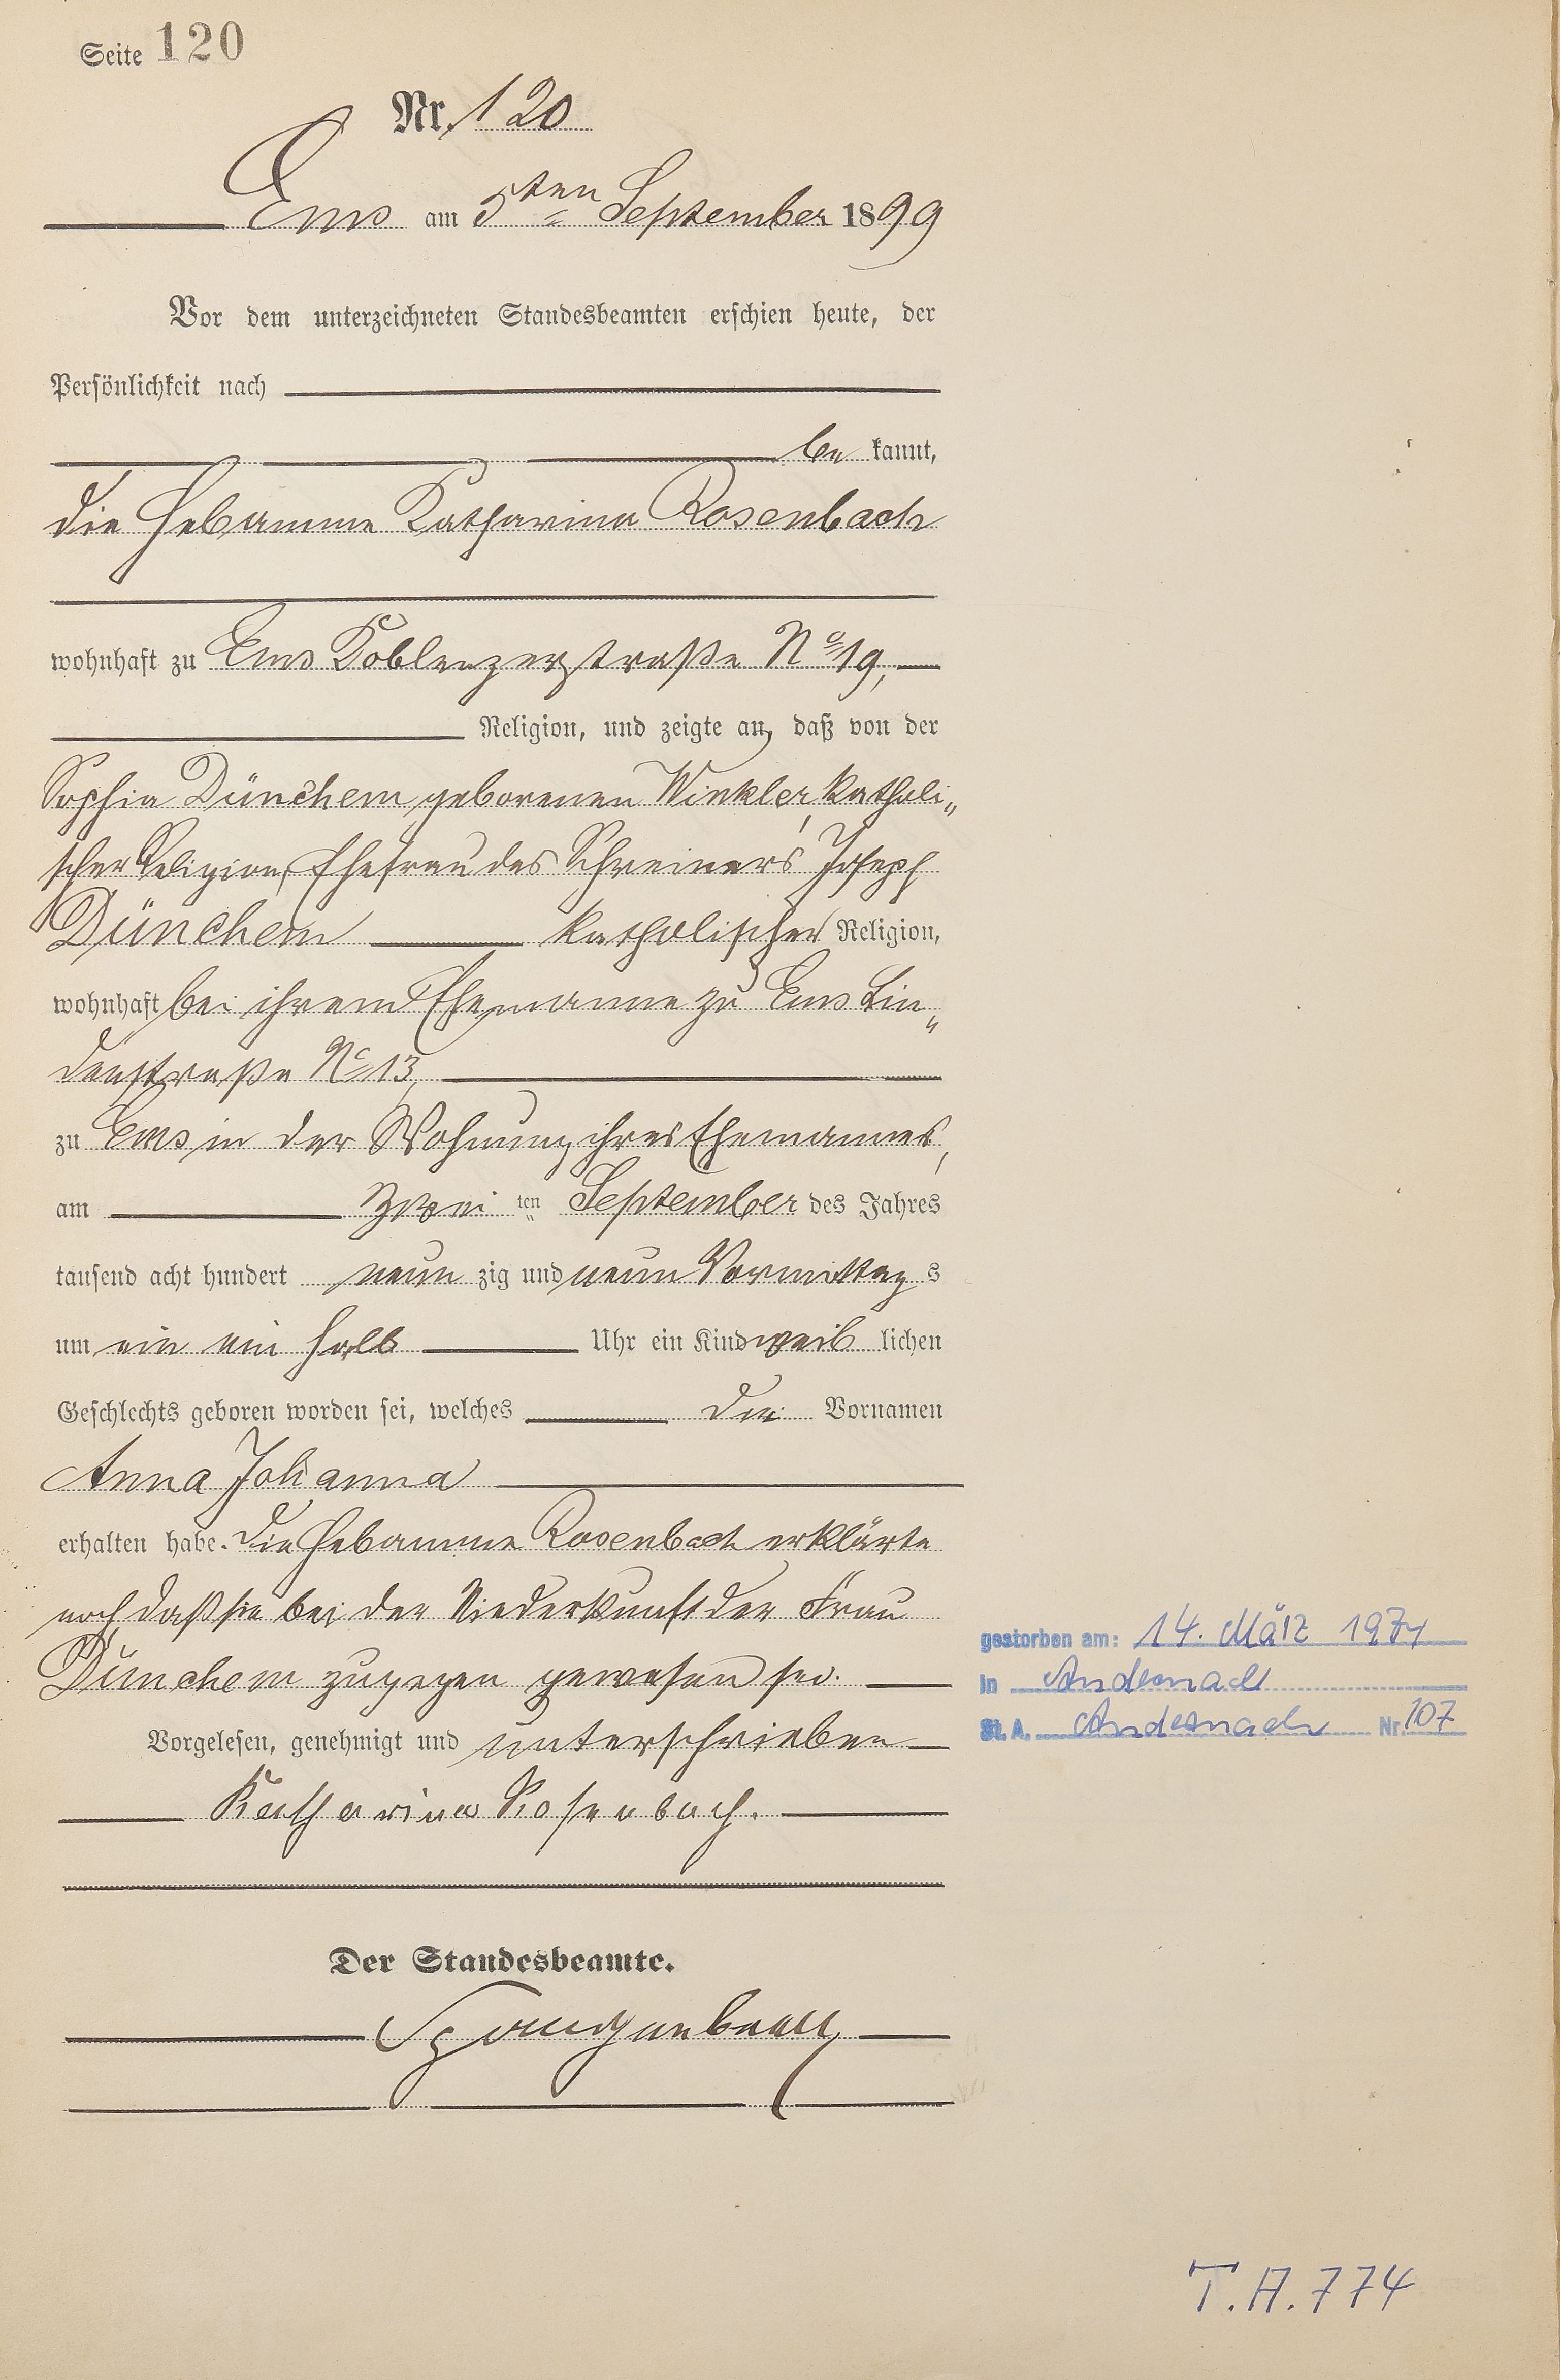 Seite 120
Nr. 120
Ems am 5ten September 1899
Vor dem unterzeichneten Standesbeamten erschien heute, der
Persönlichkeit nach
be kannt,
die Hebamme Katharina Rosenbach
wohnhaft zu Ems Koblenzerstraße No 19,
Religion, und zeigte an, daß von der
Sophia Dünchem, geborenen Winkler, katholi„
scher Religion, Ehefrau des Schreiners Joseph
Dünchem katholischer Religion,
wohnhaft bei ihrem Ehemanne zu Ems Lin„
denstraße No 13,
zu Ems in der Wohnung ihres Ehemannes,
am zwei ten September des Jahres
tausend acht hundert neun zig und neun Vormittag s
um ein ein halb Uhr ein Kind weib lichen
Geschlechts geboren worden sei, welches die Vornamen
Anna Johanna
erhalten habe. Die Hebamme Rosenbach erklärte
noch, daß sie bei der Niederkunft der Frau
Dünchem zugegen gewesen sei.
Vorgelesen, genehmigt und unterschrieben
Katharina Rosenbach.
Der Standesbeamte.
gestorben am: 14. März 1974
in Andernach
St. A. Andernach Nr. 107
T.A. 774